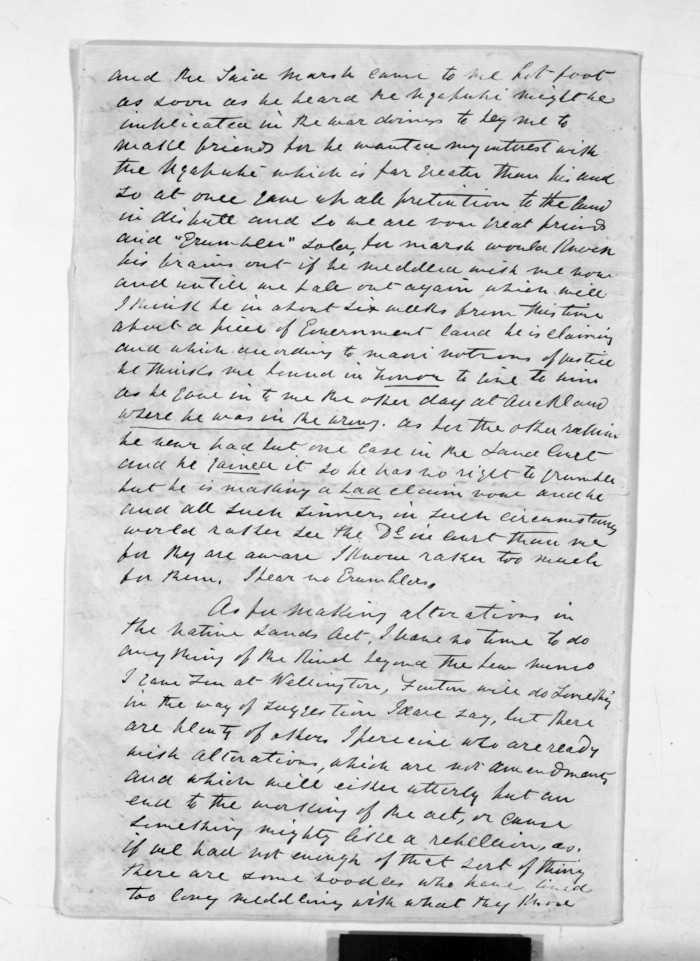 and the Said Marsh came to me hot foot
as soon as he heard the Ngapuhi might be
implicated in the war doings to beg me to
make friends for he wanted my interest with
the Ngapuhi which is far greater than his and
so at once gave up all pretention to the land
in dispute and so we are now great friends
and "Grumbler" for Marsh would knock
his brains out if he meddled with me now
and untill we fall out again which will
I think be in about six weeks from this time
about a piece of Government land he is claiming
and which according to maori notions of justice
he thinks me bound in honour to give to him
as he gave in to me the other day at Auckland
where he was in the wrong. as for the other
he never had but one case in the Land Court
and he gained it so he has no right to grumble
but he is making a bad claim now and he
and all such sinners in such circumstances
would rather see the Dr in court than me
for they are aware I know rather too much
for them. I fear no Grumblers.
As for making alterations in
the Native Lands Act, I have no time to do
any thing of the kind beyond the few memo
I gave you at Wellington, Fenton will do something
in the way of suggestion I dare say, but there
are plenty of others I perceive who are ready
with alterations, which are not amendments
and which will either utterly put an
end to the working of the act, or cause
something mighty like a rebellion, as
if we had not enough of that sort of thing
there are some noodles who have lived
too long meddling with what they know